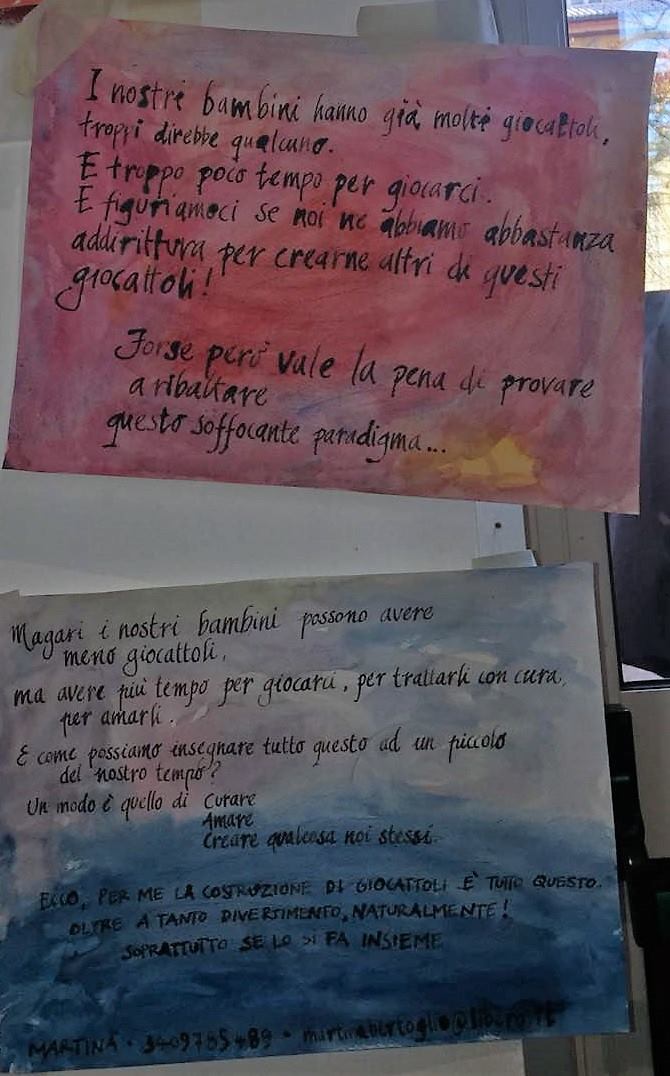 I nostri bambini hanno già molti giocattoli,
troppi direbbe qualcuno.
E troppo poco tempo per giocarci.
E figuriamoci se noi ne abbiamo abbastanza
addirittura per crearne altri di questi
giocattoli!
Forse però vale la pena di provare
a ribaltare
questo soffocante paradigma...
Magari i nostri bambini possono avere
meno giocattoli,
ma avere più tempo per giocarci, per trattarli con cura,
per amarli.
E come possiamo insegnare tutto questo ad un piccolo
del nostro tempo?
Un modo è quello di Curare
Amare
Creare qualcosa noi stessi.
ECCO, PER ME LA COSTRUZIONE DI GIOCATTOLI È TUTTO QUESTO.
OLTRE A TANTO DIVERTIMENTO, NATURALMENTE!
SOPRATTUTTO SE LO SI FA INSIEME
MARTINA • 3409785489 • martinabertoglio@libero.it